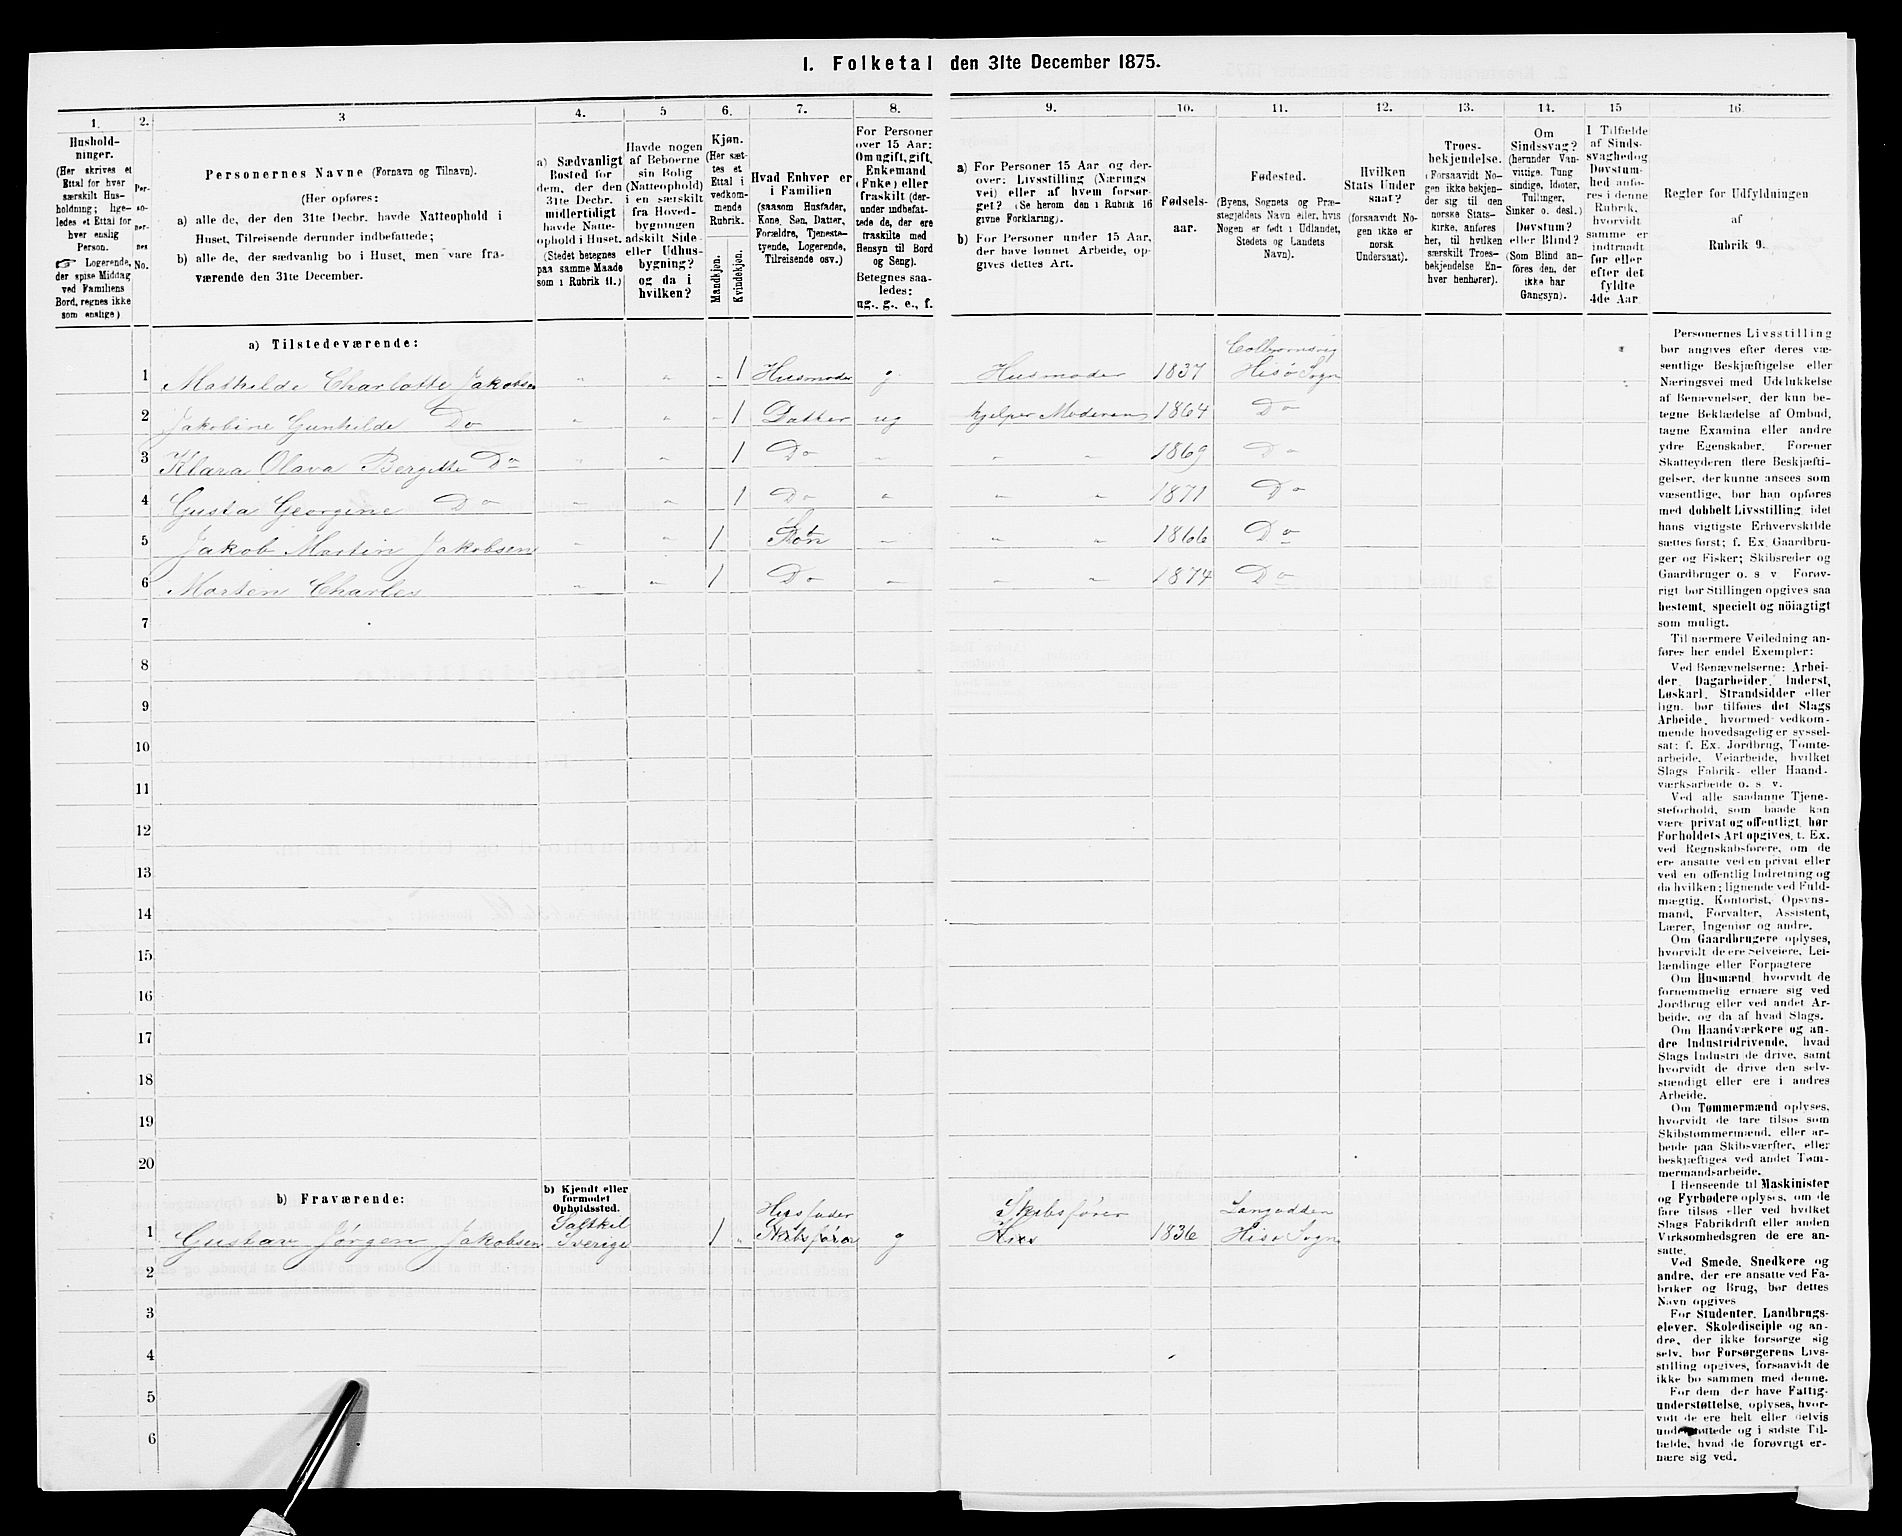 1. Folketal den 31te December 1875.
1. 2. 3 4. 5 6. 7. 8. 9. 10. 11. 12. 13. 14. 15 16.
Hushold-
ninger.
(Her skrives et
Ettal for hver
særskilt Hus-
holdning; lige-
ledes et Ettal for
hver enslig
Person.
☞ Logerende,
der spise Middag
ved Familiens
Bord, regnes ikke
som enslige)
Per-
so-
ner-
nes
No.
Personernes Navne (Fornavn og Tilnavn).
(Her opføres:
a) alle de, der den 31te Decbr. havde Natteophold i
Huset, Tilreisende derunder indbefattede;
b) alle de, der sædvanlig bo i Huset, men vare fra-
værende den 31te December.
a) Sædvanligt
Bosted for
dem, der den
31te Decbr.
midlertidigt
havde Natte-
ophold i Huset.
(Stedet betegnes
paa samme Maade
som i Rubrik 11.)
Havde nogen
af Beboerne
sin Bolig
(Natteophold)
i en særskilt
fra Hoved-
bygningen
adskilt Side-
eller Udhus-
bygning?
og da i
hvilken?
Kjøn.
(Her sæt-
tes et
Ettal i
vedkom-
mende
Rubrik.
Mandkjøn.
Kvindekjøn.
Hvad Enhver er
i Familien
(saasom Husfader,
Kone, Søn, Datter,
Forældre, Tjeneste-
tyende, Logerende,
Tilreisende osv.)
For Personer
over 15 Aar:
Om ugift, gift,
Enkemand
(Enke) eller
fraskilt (der-
under indbefat-
tede de, der ere
fraskilte med
Hensyn til Bord
og Seng).
Betegnes saa-
ledes:
ug., g., e., f.
a) For Personer 15 Aar og der-
over: Livsstilling (Nærings-
vei) eller af hvem forsør-
get? (Se herom den i Rubrik 16
givne Forklaring).
b) For Personer under 15 Aar,
der have lønnet Arbeide, op-
gives dettes Art.
Fødsels-
aar.
Fødested.
(Byens, Sognets og Præ-
stegjeldets Navn eller, hvis
Nogen er født i Udlandet,
Stedets og Landets
Navn).
Hvilken
Stats Under
saat?
(forsaavidt No-
gen ikke er
norsk
Undersaat).
Troes-
bekjendelse.
(Forsaavidt No-
gen ikke bekjen-
der sig til den
norske Stats-
kirke, anføres
her, til hvilken
særskilt Troes-
bekjendelse En-
hver henhører).
Om
Sindssvag?
(herunder Van-
vittige, Tung
sindige, Idioter,
Tullinger,
Sinker o. desl.)
Døvstum?
eller Blind?
(Som Blind an-
føres den, der
ikke har
Gangsyn).
I Tilfælde
af Sinds-
svaghed og
Døvstum-
hed anfø-
res i denne
Rubrik,
hvorvidt
samme er
indtraadt
før eller
efter det
fyldte
4de Aar.
Regler for Udfyldningen
af
Rubrik 9.
a) Tilstedeværende:
Colbjørnsvig
1 Mathilde Charlotte Jakobsen " " " 1 Husmoder g. Husmoder 1837 Hisø Sogn
2 Jakobine Gunhilde Do " " " 1 Datter ug hjelper Moderen 1864 Do
3 Klara Olava Bergitte Do " " 1 Do " " " 1869 Do
4 Gusta Georgine Do " " 1 Do " " " 1871 Do
5 Jakob Martin Jakobsen " " 1 Søn " " " 1866 Do
6 Morten Charles " " 1 Do " " " 1874 Do
7
8
9
10
11
12
13
14
15
16
17
18
19
20
b) Fraværende:
b) Kjendt eller
formodet
Opholdssted.
1 Gustav Jørgen Jakobsen Saltkil Sverige 1 " Husfader Skibsfører g Skibsfører 1836 Langodden Hisø Sogn
2
3
4
5
6
Personernes Livsstilling
bør angives efter deres væ-
sentlige Beskjæftigelse eller
Næringsvei med Udelukkelse
af Benævnelser, der kun be-
tegne Beklædelse af Ombud,
tagne Examina eller andre
ydre Egenskaber. Forener
Skatteyderen flere Beskjæfti-
gelser, der kunne ansees som
væsentlige, bør han opføres
med dobbelt Livsstilling, idet
hans vigtigste Erhvervskilde
sættes først; f. Ex. Gaardbru-
ger og Fisker; Skibsreder og
Gaardbruger o. s. v. Forøv-
rigt bør Stillingen opgives saa
bestemt, specielt og nöiagtigt
som muligt.
Til nærmere Veiledning an-
føres her endel Exempler:
Ved Benævnelserne: Arbei-
der, Dagarbeider, Inderst,
Løskarl, Strandsidder eller
lign. bør tilføres det Slags
Arbeide, hvormed vedkom-
mende hovedsagelig er syssel-
sat; f. Ex. Jordbrug, Tomte-
arbeide, Veiarbeide, hvilket
Slags Fabrik- eller Haand-
værksarbeide o. s. v.
Ved alle saadanne Tjene-
steforhold, som baade kan
være privat og offentligt, bør
Forholdets Art opgives, t. Ex.
ved Regnskabsførere, om de
ere ansatte ved en privat eller
ved en offentlig Indretning og
da hvilken; lignende ved Fuld-
mægtig, Kontorist, Opsyns-
mand, Forvalter, Assistent,
Lærer, Ingeniør og andre.
Om Gaardbrugere oplyses,
hvorvidt de ere Selveiere, Lei-
lændinge eller Forpagtere
Om Husmænd, hvorvidt de
fornemmelig ernære sig ved
Jordbrug eller ved andet Ar-
beide, og da af hvad Slags.
Om Haandværkere og an-
dre Industridrivende, hvad
Slags Industri de drive, samt
hvorvidt de drive den selv-
stændigt eller ere i andres
Arbeide.
Om Tømmermænd oplyses,
hvorvidt de fare tilsøs som
Skibstømmermænd, eller ar-
beide paa Skibsværfter, eller
beskjæftiges ved andet Tøm-
mermandsarbeide.
I Henseende til Maskinister
og Fyrbødere oplyses, om de
fare tilsøs eller ved hvilket
Slags Fabrikdrift eller anden
Virksomhedsgren de ere an-
satte.
Ved Smede, Snedkere og
andre, der ere ansatte ved Fa-
briker og Brug, bør dettes
Navn opgives
For Studenter, Landbrugs-
elever, Skoledisciple og an-
dre, der ikke forsørge sig
selv, bør Forsørgerens Livs-
stilling opgives, forsaavidt de
ikke bo sammen med denne.
For dem, der have Fattig-
understøttelse, oplyses, hvor-
vidt de ere helt eller delvis
understøttede og i sidste Til-
fælde, hvad de forøvrigt er-
nære sig ved.